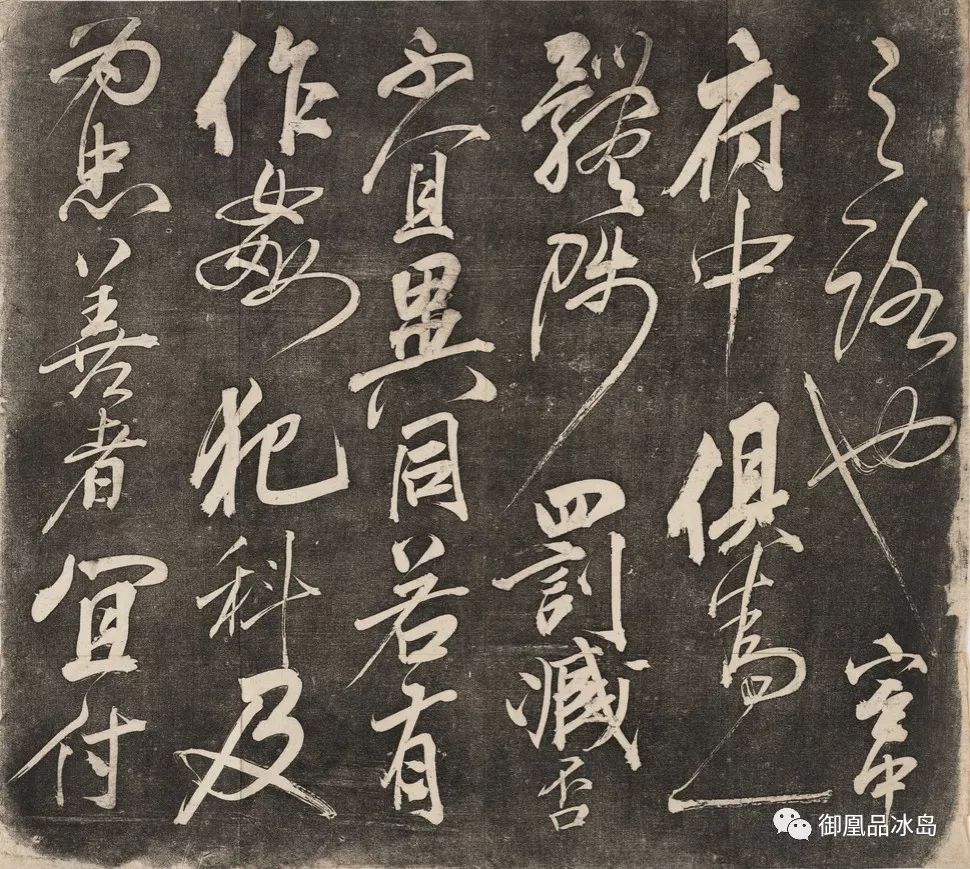 之路也宮中
府中俱為一
體陟罰臧否
不宜異同若有
作姦犯科及
為忠善者宜付
御凰品冰岛